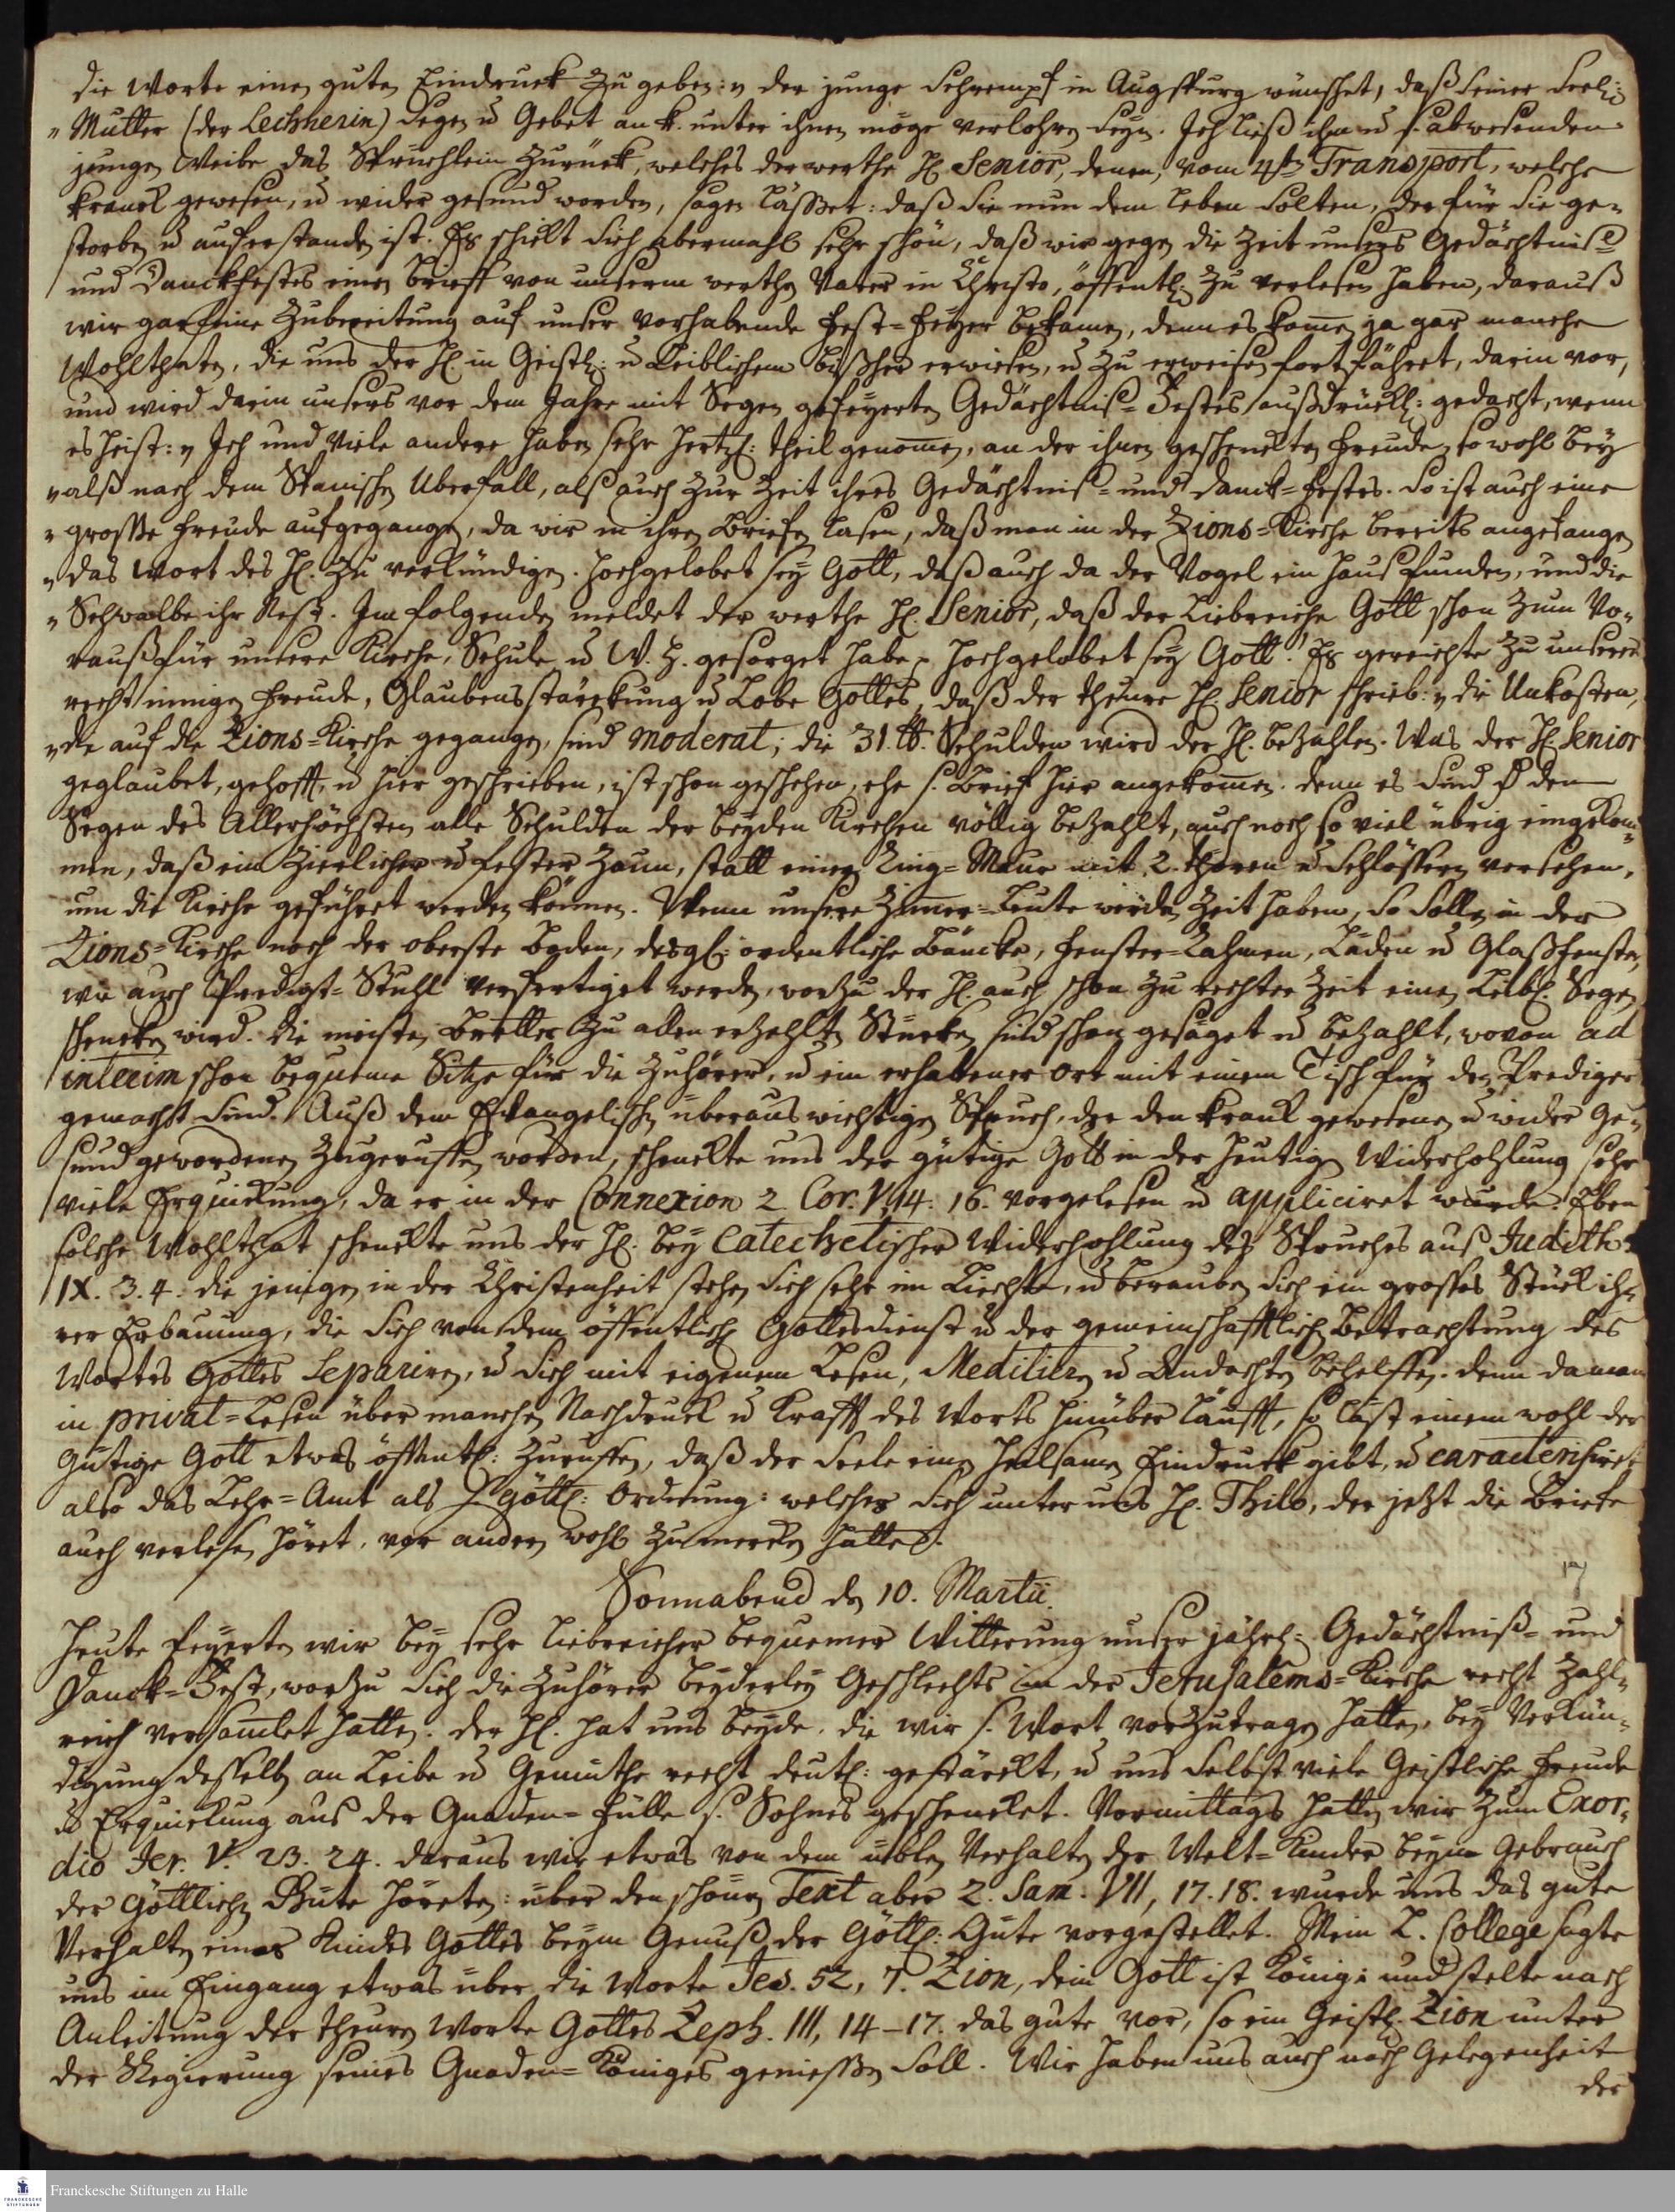 die Worte einen guten Eindruck zu geben: „ der junge Schrempf in Augspurg wünschet, daß seiner seel:
„ Mutter (der Lechnerin) Segen u. Gebet an k. unter ihnen möge verlohren seyn. Ich ließ ihm u. s. abwesenden
jungen Weibe das Sprüchlein zurück, welches der werthe H. Senior, denen, vom 4ten Transport, welche
kranck gewesen, u. wider gesund worden, sagen lässet: daß sie nun dem leben solten, der für sie ge-
storben u. auferstanden ist. Es schickt sich abermahl sehr schön, daß wir gegen die Zeit unsers Gedächtniß-
und Danckfestes einen Brieff von unserm werthen Vater in Christo, öffentl. zu verlesen haben, darauß
wir gar feine Zubereitung auf unser vorhabende Fest-Feyer bekamen, denn es komen ja gar manche
Wohlthaten, die uns der H. in Geistl: u. Leiblichem bißher erwiesen, u. zu erweisen fortfähret, darin vor,
und wird darin unsers vor dem Jahre mit Segen gefeyerten Gedächtniß-Festes außdrückl: gedacht, wenn
es heist: „ Ich und viele andere haben sehr hertzl: theil genomen, an der ihnen geschenckten Freude, so wohl bey
„ alß nach dem Spanischen Uberfall, als auch zur Zeit ihres Gedächtniß- und Danck-Festes. So ist auch eine
„ grosse Freude aufgegangen, da wir in ihren Briefen lasen, daß man in der Zions-Kirche bereits angefangen
„ das Wort des H. zu verkündigen. Hochgelobet sey Gott, daß auch da der Vogel ein Haus funden, und die
„ Schwalbe ihr Nest. Im folgenden meldet der werthe H. Senior, daß der Liebreiche Gott schon zum Vo-
rauß für unsere Kirche, Schule u. W. H. gesorget habe. Hochgelobet sey Gott! Es gereichte zu unserer
recht innigen Freude, Glaubensstärckung u. Lobe Gottes, daß der theure H. Senior schrieb: „ die Unkosten,
„ die auf die Zions-Kirche gegangen, sind moderat; die 31. lb. Schulden wird der H. bezahlen. Was der H. Senior
geglaubet, gehofft, u. hier geschrieben, ist schon geschehen, ehe s. Brief hier angekomen. denn es sind d. den
Segen des Allerhöchsten alle Schulden der beyden Kirchen völlig bezahlt, auch noch so viel übrig eingekom-
men, daß ein zierlicher u. fester Zaun, statt einer Ring-Maur mit 2. thoren u. Schlössern versehen,
um die Kirche geführet werden können. Wenn unsere Zimer-Leute werden Zeit haben, so sollen in der
Zions-Kirche noch der oberste Boden, desgl: ordentliche Bäncke, Fenster-Rahmen, Läden u. Glaßfenster,
wie auch Predigt-Stuhl verfertiget werden, worzu der H. auch schon zu rechter Zeit einen Leibl. Segen
schencken wird. Die meisten Bretter zu allen erzehlten Stücken sind schon gesäget u. bezahlt, wovon ad
interim schon bequeme Sitze für die Zuhörer, u. ein erhabener Ort mit einem Tisch für den Prediger
gemacht sind. Auß dem Evangelischen überaus wichtigen Spruch, der den kranck gewesenen u. wider ge-
sund gewordenen zugeruffen worden, schenckte uns der gütige Gott in der heutigen Widerhohlung sehr
viele Erquickung, da er in der Connexion 2 Cor. V, 14. 16. vorgelesen u. appliciret wurde. Eben
solche Wohlthat schenckte uns der H. bey Catechetischer Widerhohlung des Spruches auß Judith
IX. 3. 4. die jenigen in der Christenheit stehen sich sehr im Liechte, u. berauben sich ein grosses Stück ih-
rer Erbauung, die sich von dem öffentlich Gottesdienst u. der gemeinschafftlich Betrachtung des
Wortes Gottes separiren, u. sich mit eigenem Lesen, Meditiren u. Andachten behelffen. denn da man
in privat-Lesen über manchen Nachdruck u. Krafft des Worts hinüber läufft, so läst einem wohl der
gütige Gott etwas öffentl: zuruffen, daß der Seele einen heilsamen Eindruck gibt, u. caracterisiret
also das Lehr-Amt als s. göttl: Ordnung: welches sich unter uns H. Thilo, der jetzt die Briefe
auch verlesen höret, vor andern wohl zu mercken hatte.
Sonnabend den 10. Martii.
Heute feyerten wir bey sehr liebreicher bequemer Witterung unser jährl: Gedächtniß- und
Danck-Fest, worzu sich die Zuhörer beyderley Geschlechts in der Jerusalems-Kirche recht zahl-
reich versamlet hatten. Der H. hat uns beyde, die wir s. Wort vorzutragen hatten, bey Verkün-
digung desselben an Leibe u. Gemüthe recht deutl: gestärckt, u. uns selbst viele Geistliche Freude
u. Erquickung aus der Gnaden-Fülle s. Sohnes geschencket. Vormittags hatten wir zum Exor-
dio Jer. V. 23. 24. daraus wir etwas von dem üblen Verhalten der Welt-Kinder beym Gebrauch
der Göttlichen Güte höreten: über den schönen Text aber 2. Sam. VII, 17. 18. wurde uns das gute
Verhalten eines Kindes Gottes beym Genuß der Göttl: Güte vorgestellet. Mein L. College sagte
uns im Eingang etwas über die Worte Jes. 52, 7. Zion, dein Gott ist König: und stelte nach
Anleitung der theuren Worte Gottes Zeph. III, 14-17. das gute vor, so ein Geistl. Zion unter
der Regierung seines Gnaden-Königes geniessen soll. Wir haben uns auch nach Gelegenheit
der
Franckesche Stiftungen zu Halle